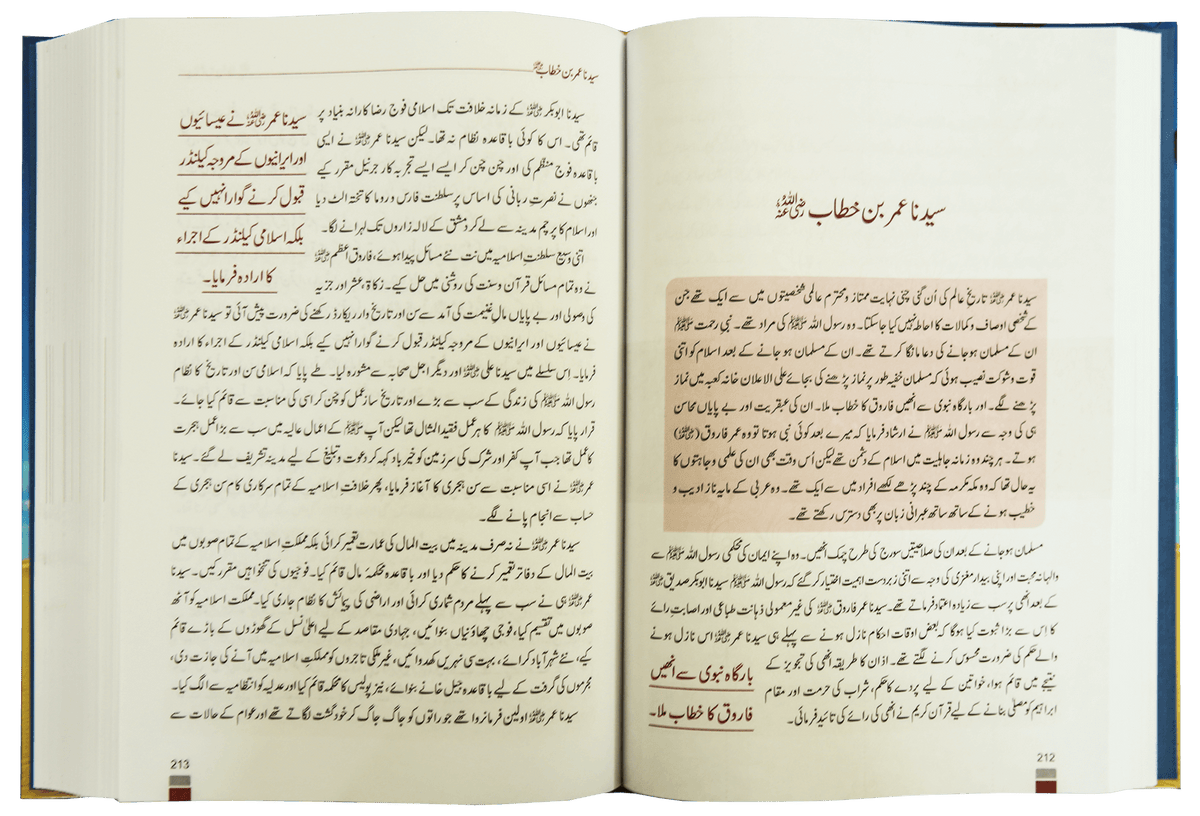 سیدنا عمر بن خطاب رضی اللہ عنہ
سیدنا عمر رضی اللہ عنہ تاریخ عالم کی اُن گنی چنی نہایت ممتاز و محترم عالمی شخصیتوں میں سے ایک تھے جن
کے شخصی اوصاف و کمالات کا احاطہ نہیں کیا جا سکتا۔ وہ رسول اللہ ﷺ کی مراد تھے۔ نبی رحمت ﷺ
ان کے مسلمان ہو جانے کی دعا مانگا کرتے تھے۔ ان کے مسلمان ہو جانے کے بعد اسلام کو اتنی
قوت و شوکت نصیب ہوئی کہ مسلمان خفیہ طور پر نماز پڑھنے کی بجائے علی الاعلان خانہ کعبہ میں نماز
پڑھنے لگے۔ اور بارگاہ نبوی سے انھیں فاروق کا خطاب ملا۔ ان کی عبقریت اور بے پایاں محاسن
ہی کی وجہ سے رسول اللہ ﷺ نے ارشاد فرمایا کہ میرے بعد کوئی نبی ہوتا تو وہ عمر فاروق (رضی اللہ عنہ)
ہوتے۔ ہر چند وہ زمانہ جاہلیت میں اسلام کے دشمن تھے لیکن اُس وقت بھی ان کی علمی وجاہتوں کا
یہ حال تھا کہ وہ مکہ مکرمہ کے چند پڑھے لکھے افراد میں سے ایک تھے۔ وہ عربی کے مایہ ناز ادیب و
خطیب ہونے کے ساتھ ساتھ عبرانی زبان پر بھی دسترس رکھتے تھے۔
مسلمان ہو جانے کے بعد ان کی صلاحیتیں سورج کی طرح چمک اٹھیں۔ وہ اپنے ایمان کی محکمی رسول اللہ ﷺ سے
والہانہ محبت اور اپنی بیدار مغزی کی وجہ سے اتنی زبردست اہمیت اختیار کر گئے کہ رسول اللہ ﷺ سیدنا ابوبکر صدیق رضی اللہ عنہ
کے بعد انھی پر سب سے زیادہ اعتماد فرماتے تھے۔ سیدنا عمر فاروق رضی اللہ عنہ کی غیر معمولی ذہانت طباعی اور اصابتِ رائے
کا اِس سے بڑا ثبوت کیا ہوگا کہ بعض اوقات احکام نازل ہونے سے پہلے ہی سیدنا عمر رضی اللہ عنہ اس نازل ہونے
والے حکم کی ضرورت محسوس کرنے لگتے تھے۔ اذان کا طریقہ انھی کی تجویز کے
نتیجے میں قائم ہوا، خواتین کے لیے پردے کا حکم، شراب کی حرمت اور مقام
ابراہیم کو مصلّٰی بنانے کے لیے قرآن کریم نے انھی کی رائے کی تائید فرمائی۔
بارگاہ نبوی سے انھیں
فاروق کا خطاب ملا۔
212
سیدنا عمر بن خطاب رضی اللہ عنہ
سیدنا ابوبکر رضی اللہ عنہ کے زمانہ خلافت تک اسلامی فوج رضا کارانہ بنیاد پر
قائم تھی۔ اس کا کوئی باقاعدہ نظام نہ تھا۔ لیکن سیدنا عمر رضی اللہ عنہ نے ایسی
باقاعدہ فوج منظم کی اور چن چن کر ایسے ایسے تجربہ کار جرنیل مقرر کیے
جنھوں نے نصرتِ ربانی کی اساس پر سلطنت فارس و روما کا تختہ الٹ دیا
اور اسلام کا پرچم مدینہ سے لے کر دمشق کے لالہ زاروں تک لہرانے لگا۔
اتنی وسیع سلطنتِ اسلامیہ میں نت نئے مسائل پیدا ہوئے، فاروق اعظم رضی اللہ عنہ
نے وہ تمام مسائل قرآن و سنت کی روشنی میں حل کیے۔ زکاۃ، عشر اور جزیہ
سیدنا عمر رضی اللہ عنہ نے عیسائیوں
اور ایرانیوں کے مروجہ کیلنڈر
قبول کرنے گوارا نہیں کیے
بلکہ اسلامی کیلنڈر کے اجراء
کا ارادہ فرمایا۔
کی وصولی اور بے پایاں مالِ غنیمت کی آمد سے سن اور تاریخ وار ریکارڈ رکھنے کی ضرورت پیش آئی تو سیدنا عمر رضی اللہ عنہ
نے عیسائیوں اور ایرانیوں کے مروجہ کیلنڈر قبول کرنے گوارا نہیں کیے بلکہ اسلامی کیلنڈر کے اجراء کا ارادہ
فرمایا۔ اِس سلسلے میں سیدنا علی رضی اللہ عنہ اور دیگر اجل صحابہ سے مشورہ لیا۔ طے پایا کہ اسلامی سن اور تاریخ کا نظام
رسول اللہ ﷺ کی زندگی کے سب سے بڑے اور تاریخ ساز عمل کو چن کر اسی کی مناسبت سے قائم کیا جائے۔
قرار پایا کہ رسول اللہ ﷺ کا ہر عمل فقید المثال تھا لیکن آپ ﷺ کے اعمال عالیہ میں سب سے بڑا عمل ہجرت
کا عمل تھا جب آپ کفر اور شرک کی سرزمین کو خیر باد کہہ کر دعوت و تبلیغ کے لیے مدینہ تشریف لے گئے۔ سیدنا
عمر رضی اللہ عنہ نے اسی مناسبت سے سن ہجری کا آغاز فرمایا، پھر خلافتِ اسلامیہ کے تمام سرکاری کام سن ہجری کے
حساب سے انجام پانے لگے۔
سیدنا عمر رضی اللہ عنہ نے نہ صرف مدینہ میں بیت المال کی عمارت تعمیر کرائی بلکہ مملکتِ اسلامیہ کے تمام صوبوں میں
بیت المال کے دفاتر تعمیر کرنے کا حکم دیا اور باقاعدہ محکمۂ مال قائم کیا۔ فوجیوں کی تنخواہیں مقرر کیں۔ سیدنا
عمر رضی اللہ عنہ ہی نے سب سے پہلے مردم شماری کرائی اور اراضی کی پیمائش کا نظام جاری کیا۔ مملکت اسلامیہ کو آٹھ
صوبوں میں تقسیم کیا، فوجی چھاؤنیاں بنوائیں، جہادی مقاصد کے لیے اعلیٰ نسل کے گھوڑوں کے باڑے قائم
کیے، نئے شہر آباد کرائے، بہت سی نہریں کھدوائیں، غیر ملکی تاجروں کو مملکتِ اسلامیہ میں آنے کی اجازت دی،
مجرموں کی گرفت کے لیے باقاعدہ جیل خانے بنوائے، نیز پولیس کا محکمہ قائم کیا اور عدلیہ کو انتظامیہ سے الگ کیا۔
سیدنا عمر رضی اللہ عنہ اولین فرمانروا تھے جو راتوں کو جاگ جاگ کر خود گشت لگاتے تھے اور عوام کے حالات سے
213